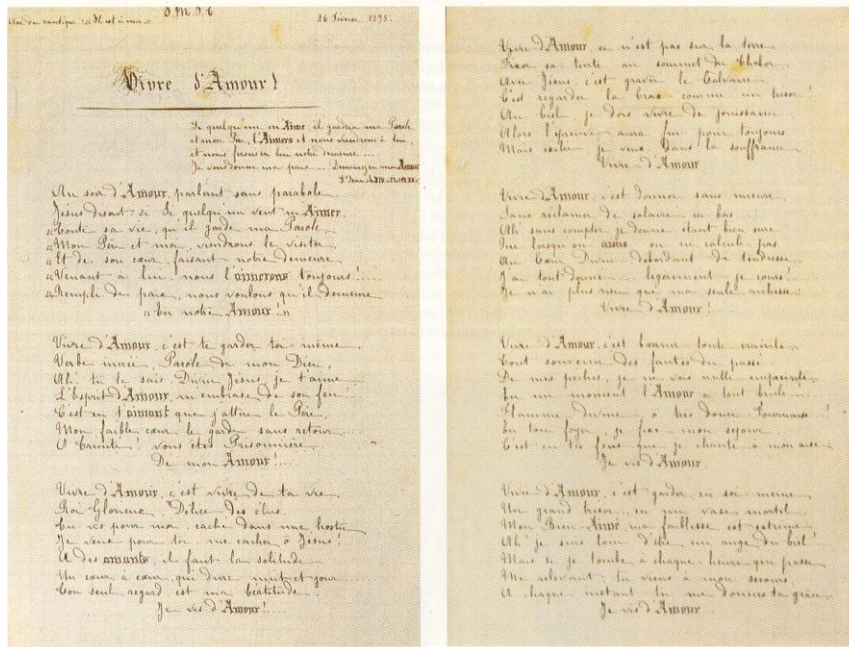 J.M.J.T.
Air du cantique : "Il est à moi"
26 Février 1895.
Vivre d'Amour !
Si quelqu'un m'Aime, il gardera ma Parole
et mon Père, l'Aimera et nous viendrons à lui,
et nous ferons en lui notre demeure....
Je vous donne ma paix... Demeurez en mon Amour
Au soir d'Amour, parlant sans parabole
Jésus disait : "Si quelqu'un veut m'Aimer
"Toute sa vie, qu'il garde ma Parole
"Mon Père et moi viendrons le visiter
"Et de son cœur, faisant notre demeure
"Venant à lui, nous l'aimerons toujours !....
"Rempli de paix, nous voulons qu'il demeure
"En notre Amour !.."
Vivre d'Amour, c'est te garder toi-même
Verbe incréé, Parole de mon Dieu,
Ah ! tu le sais, Divin Jésus, je t'aime
L'Esprit d'Amour m'embrase de son feu
C'est en t'aimant que j'attire le Père
Mon faible cœur le garde sans retour
O Trinité ! vous êtes Prisonnière
De mon Amour !....
Vivre d'Amour, c'est vivre de ta vie
Roi Glorieux, Délice des élus.
Tu vis pour moi, caché dans une hostie
Je veux pour toi me cacher, ô Jésus !
A des amants, il faut la solitude
Un cœur à cœur qui dure nuit et jour
Ton seul regard est ma béatitude
Je vis d'Amour !....
Vivre d'Amour, ce n'est pas sur la terre
Fixer sa tente au sommet du Thabor
Avec Jésus, c'est gravir le Calvaire
C'est regarder la Croix comme un trésor !
Au Ciel je dois vivre de jouissance
Alors l'épreuve aura fui pour toujours
Mais exilée je veux dans la souffrance
Vivre d'Amour
Vivre d'Amour, c'est donner sans mesure
Sans réclamer de salaire ici-bas
Ah ! sans compter je donne étant bien sûre
Que lorsqu'on aime, on ne calcule pas
Au Cœur Divin, débordant de tendresse
J'ai tout donné... légèrement je cours !
Je n'ai plus rien que ma seule richesse :
Vivre d'Amour !
Vivre d'Amour, c'est bannir toute crainte
Tout souvenir des fautes du passé
De mes péchés, je ne vois nulle empreinte
En un moment l'Amour a tout brûlé...
Flamme divine, ô très douce Fournaise !
En ton foyer, je fixe mon séjour
C'est en tes feux que je chante à mon aise
Je vis d'Amour.
Vivre d'Amour, c'est garder en soi-même
Un grand trésor, en un vase mortel
Mon Bien-Aimé ma faiblesse est extrême
Ah ! je suis loin d'être un ange du ciel
Mais si je tombe à chaque heure qui passe
Me relevant, tu viens à mon secours
A chaque instant tu me donnes ta grâce
Je vis d'Amour...